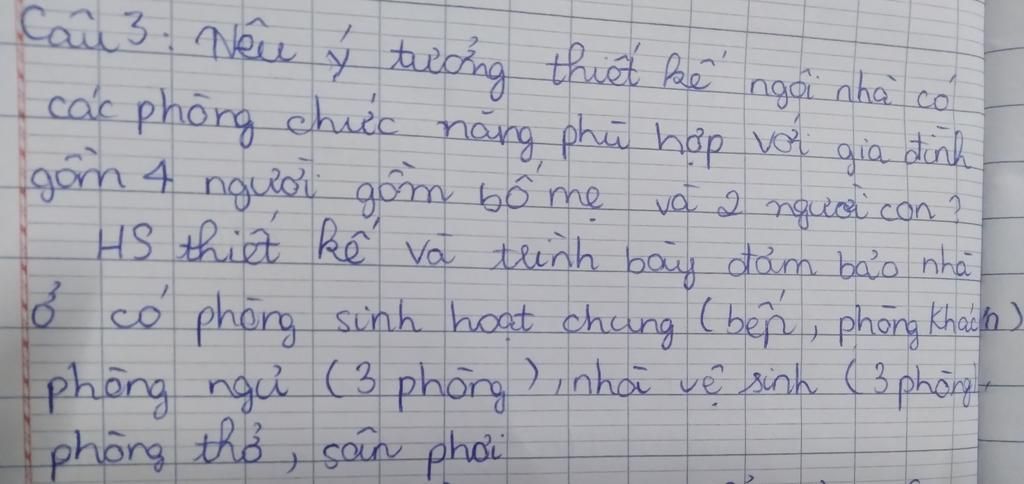 Câu 3: Nêu ý tưởng thiết kế ngôi nhà có
các phòng chức năng phù hợp với gia đình
gồm 4 người gồm bố mẹ và 2 người con?
HS thiết kế và trình bày đảm bảo nhà
ở có phòng sinh hoạt chung (bếp, phòng khách)
phòng ngủ (3 phòng), nhà vệ sinh (3 phòng),
phòng thờ, sân phơi